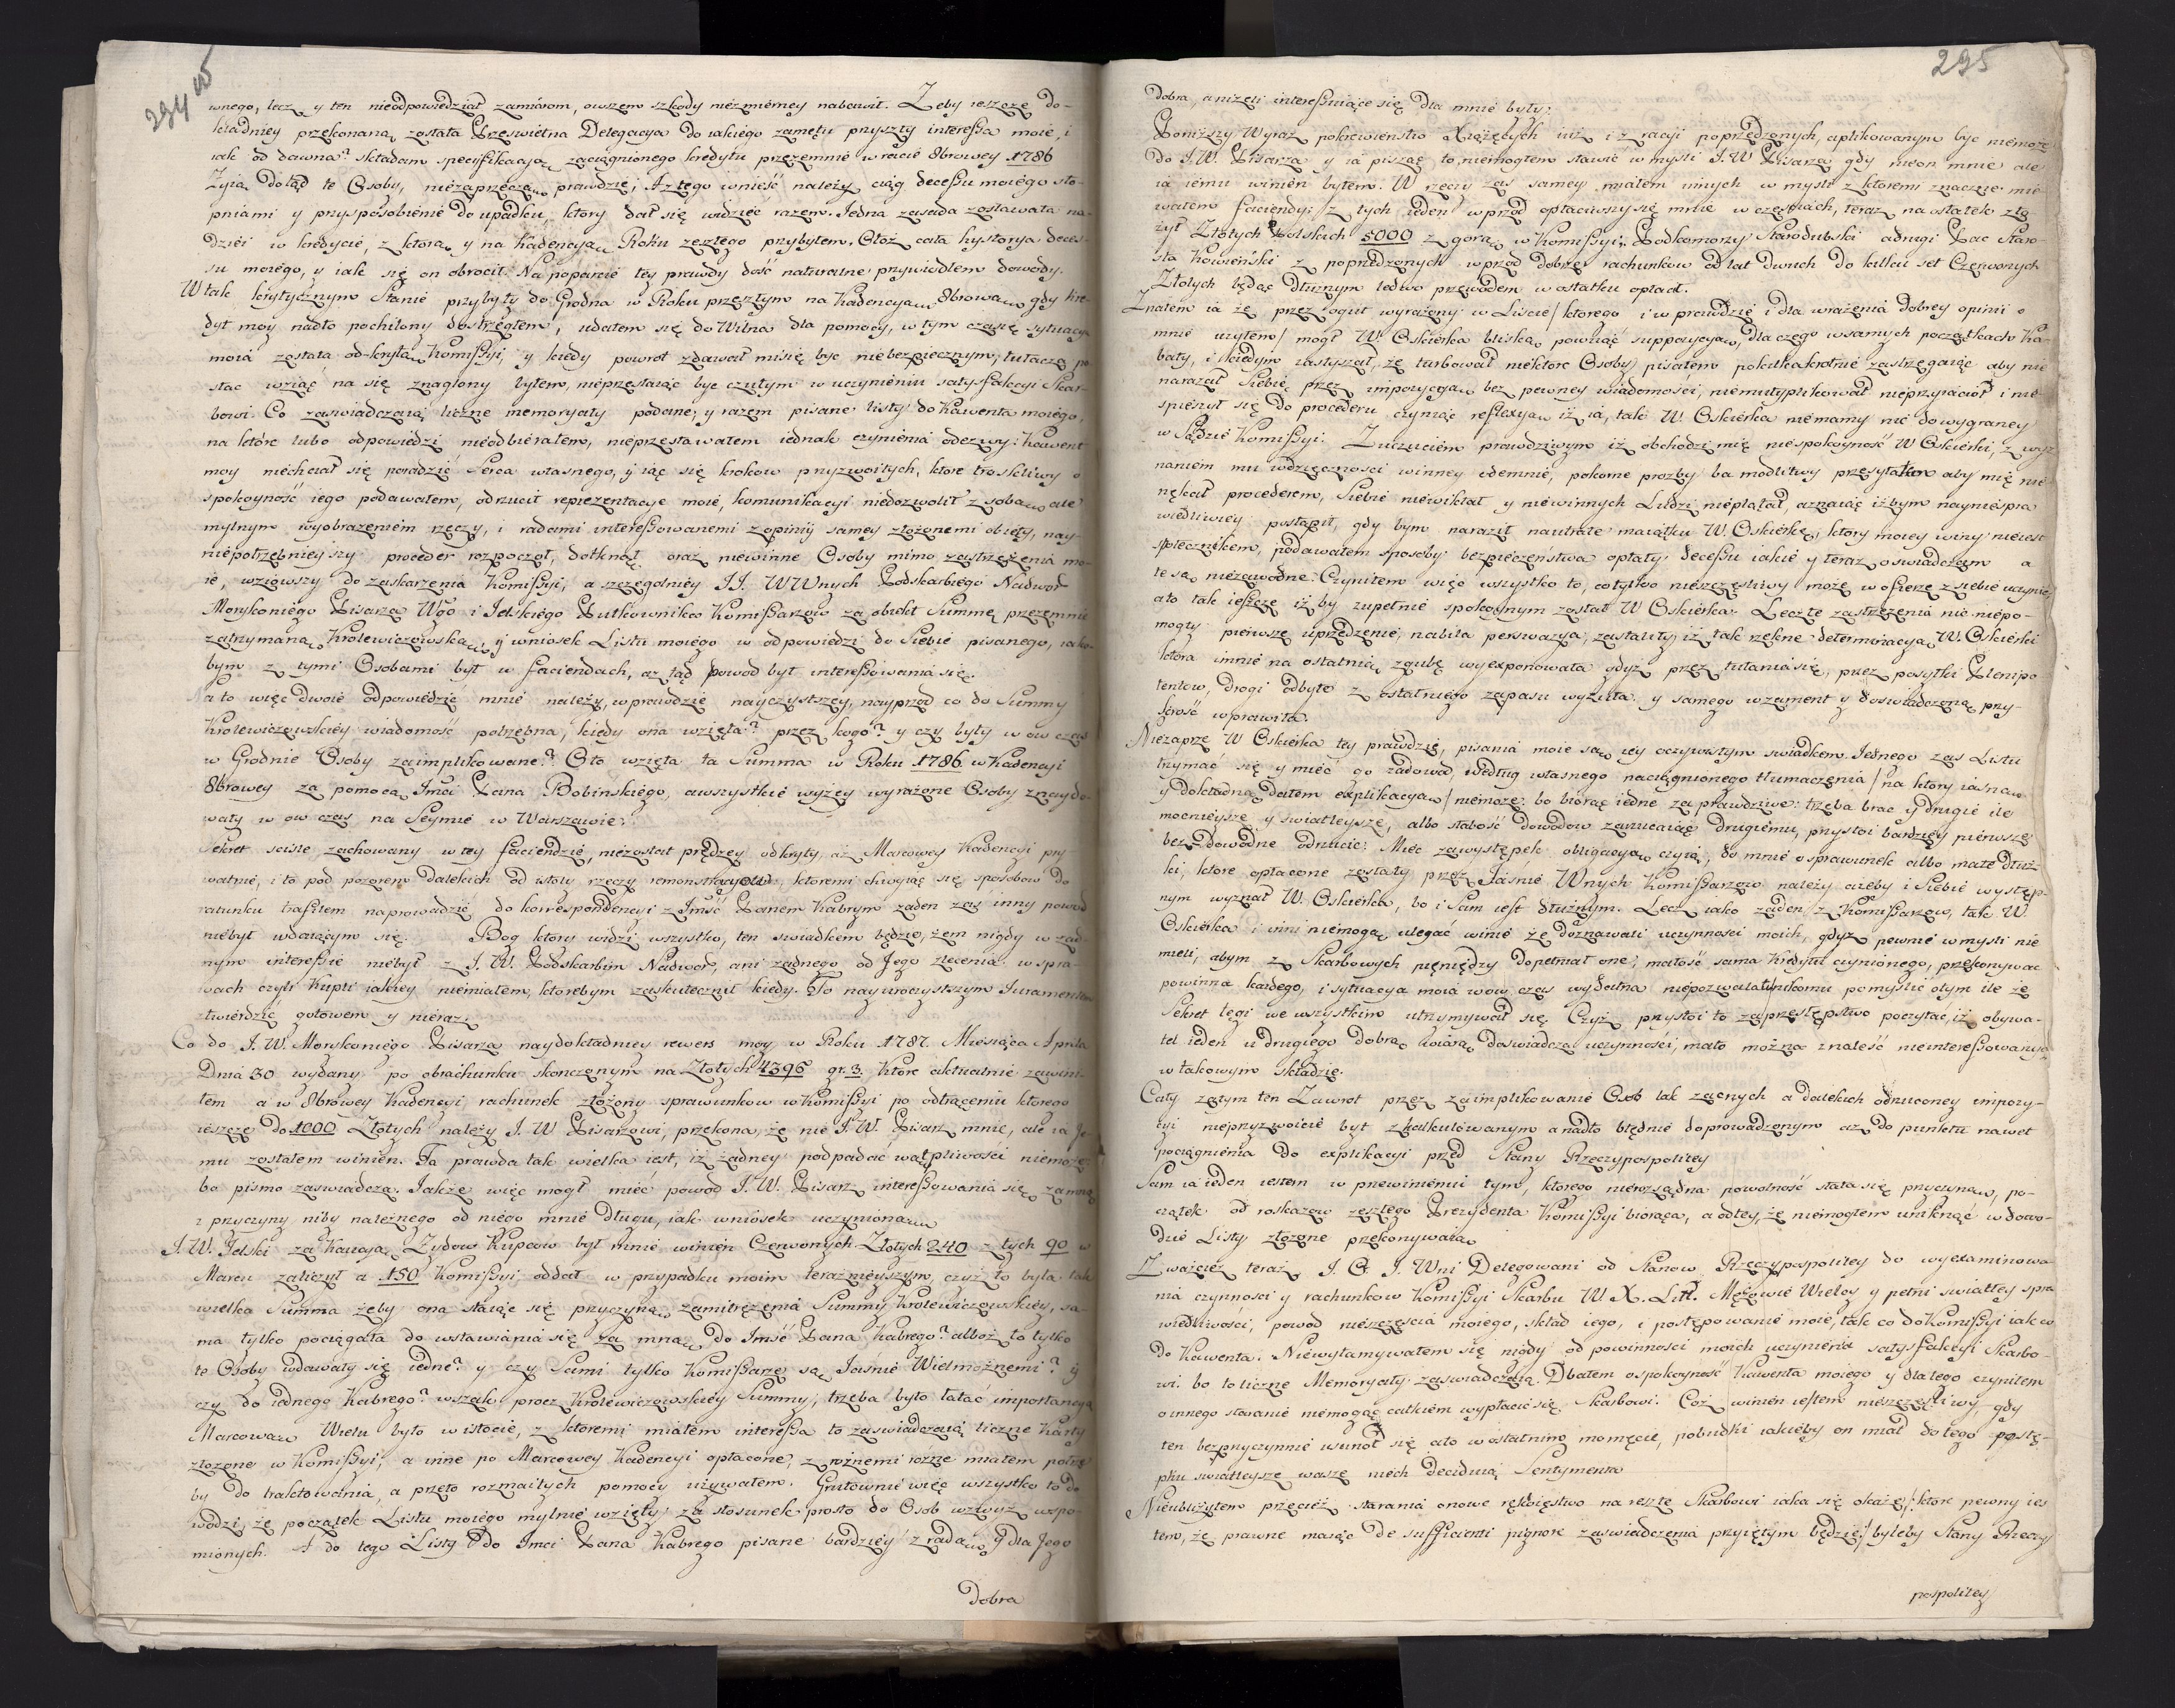 294 v
wnego, lecz y ten nieodpowiedział zamiarom, owszem szkody niezmierney nabawił. Zeby ieszcze do-
kładniey przekonaną została Prześwietna Delegacya do iakiego zamętu przyszły interessa moie, i
iak od dawna? składam specyfikacyą zaciągnionego kredytu przezemnie w racie 8browey 1786
Żyią dotąd te Osoby, niezaprzeczą prawdzie; A z tego wnieść należy ciąg decessu moiego sto-
pniami y przysposobienie do upadku, ktory dał się widzieć razem. Jedna zasada zostawała na-
dziei w kredycie, z ktorą y na Kadencyą Roku zeszłego przybyłem. Otoż cała hystorya deces-
su moiego, y iak się on obrocił. Na poparcie tey prawdy dość naturalne przywiodłem dowody.
W tak krytycznym Stanie przybyły do Grodna w Roku przeszłym na Kadencyą 8brową gdy kre-
dyt moy nadto pochilony dostrzegłem, udałem się do Wilna dla pomocy, w tym czasie sytuacya
moia została odkrytą Kommissyi, y kiedy powrot zdawał misię byc niebezpiecznym, tułaczą po-
stać wziąć na się znaglony byłem, nieprzestaiąc byc czułym w uczynieniu satysfakcyi Skar-
bowi. Co zaswiadczaią liczne memoryały podane, y razem pisane listy do Kawenta moiego,
na ktore lubo odpowiedzi nieodbierałem, nieprzestawałem iednak czynienia odezwy: Kawent
moy niechciał się poradzić Serca własnego, y iąć się krokow przyzwoitych, ktore troskliwy o
spokoyność iego podawałem, odrzucił reprezentacye moie, komunikacyi niedozwolił z sobą ale
mylnym wyobrażeniem rzeczy, i radami interessowanemi z opinij samey złożonemi obięty, nay-
niepotrzebnieyszy proceder rozpoczął, dotknął oraz niewinne Osoby mimo zastrzeżenia mo-
ie, wziąwszy do zaskarżenia Komissyi, a szczegolniey JJ. WWnych Podskarbiego Nadwor
Morykoniego Pisarza Wgo i Jelskiego Pułkownika Komissarzow za obiekt Summę przezemnie
zatrzymaną Krolewiczowską, y wniosek Listu moiego w odpowiedzi do Siebie pisanego, iako-
bym z tymi Osobami był w faciendach, az tąd powod był interessowania się.
Na to więc dwoie odpowiedzieć mnie należy, w prawdzie nayczystszey, nayprzod co do Summy
Krolewiczowskiey wiadomość potrzebna, kiedy ona wzięta? przez kogo? y czy były w ow czas
w Grodnie Osoby zaimplikowane? Oto wzięta ta Summa w Roku 1786 w Kadencyi
8browey za pomocą Jmci Pana Bobinskiego, a wszystkie wyżey wyrażone Osoby znaydo-
wały w ow czas na Seymie w Warszawie.
Sekret sciśle zachowany w tey faciendzie, niezostał prędzey odkryty, aż Marcowey Kadencyi pry-
watnie, i to pod pozorem dalekich od istoty rzeczy remonstracyow, ktoremi chwyiąc się sposobow do
ratunku trafiłem naprowadzić do korrespondencyi z Jmść Panem Kabrym zaden zas inny powod
niebył wdaiącym się. Bog ktory widzi wszystko, ten swiadkiem będzie, żem nigdy w zad-
nym interessie niebył z J. W. Podskarbim Nadwor, ani żadnego od Jego zlecenia w spra-
wach czyli Kupli iakiey niemiałem, ktorebym zaskutecznił kiedy. To nayuroczystszym Juramentem
stwierdzić gotowem y nieraz.
Co do J. W. Morykoniego Pisarza naydokładniey rewers moy w Roku 1787. Miesiąca Aprila
Dnia 30 wydany po obrachunku skonczonym na Złotych 4396 gr. 3. ktore aktualnie zawini-
łem a w 8browey Kadencyi rachunek złożony sprawunkow w Komissyi po odtrąceniu ktorego
ieszcze do 1000 Złotych należy J. W Pisarzowi, przekona, że nie J. W. Pisarz mnie, ale ia Je-
mu zostałem winien. Ta prawda tak wielka iest, iż żadney podpadać wątpliwości niemoże
bo pismo zaswiadcza. Jakże więc mogł mieć powod J. W. Pisarz interessowania się za mną
z przyczyny niby należnego od niego mnie długu, iak wniosek uczyniono
J. W. Jelski za Kaucyą Zydow Kupcow był mnie winien Czerwonych Złotych 240 z tych 90 w
Marcu zaliczył a 150 Komissyi oddał w przypadku moim teraznieyszym, czyż to była tak
wielka Summa żeby ona staiąc się przyczyną zamitrężenia Summy Krolewiczowskiey, sa-
ma tylko pociągała do wstawiania się za mną do Jmść Pana Kabrego? alboż to tylko
te Osoby wdawały się iedne? y czy Sami tylko Komissarze są Jaśnie Wielmożnemi? y
czy do iednego Kabrego? wszak procz Krolewiczowskiey Summy, trzeba było łatać importancyą
Marcową Wielu było w istocie, z ktoremi miałem interessa to zaswiadczaią liczne Karty
złożone w Komissyi, a inne po Marcowey Kadencyi opłacone, z rożnemi rożne miałem potrze-
by do traktowania, a przeto rozmaitych pomocy używałem. Gruntownie więc wszystko to do
wodzi, że początek Listu moiego mylnie wzięty za stosunek prosto do Osob wzwyż wspo-
mionych. A do tego Listy do Jmci Pana Kabrego pisane bardziey z radą y dla Jego
Dobra
295
Dobra, a niżeli interessuiące się dla mnie były.
Poniższy Wyraz pokrewienstwo Xiążęcych iuż i z racyi poprzedzonych, aplikowanym byc niemoże
Do J. W. Pisarza y ia pisząc to, niemogłem stawić w myśli J. W Pisarza gdy nieon mnie ale
ia iemu winien byłem. W rzeczy zas samey miałem innych w myśli z ktoremi znaczne mie-
wałem faciendy: z tych ieden wprzod opłaciwszy się mnie w częściach, teraz na ostatek zło
żył Złotych Polskich 5000 z gorą w Komissyi: Podkomorzy Starodubski a drugi Pac Staro-
sta Kowieński z poprzedzonych wprzod dobrze rachunkow od lat dwuch do kilku set Czerwonych
Złotych będąc dłużnym ledwo przewodem w ostatku opłacił.
Znałem ia że przez oguł wyrażony w Liscie/ ktorego i w prawdzie i dla wrażenia dobrey opinii o
mnie użyłem/ mogł W. Oskierka bliską powziąć suppozycyą, dla czego w samych początkach Ka-
baty, i kiedym zasłyszał, że turbował niektore Osoby, pisałem pokilkakrotnie zastrzegaiąc aby nie
narażał Siebie przez impozycyą bez pewney wiadomości, niemultyplikował nieprzyiacioł i nie
spieszył się do procederu, czyniąc reflexyą iż ia, tak W. Oskierka niemamy nic do wygraney
w Sądzie Komissyi. Zuczuciem prawdziwym iż obchodzi mię niespokoyność W Oskierki, z wyz
naniem mu wdzięcznosci winney odemnie, pokorne prozby ba modlitwy przesyłałem aby mię nie
nękał procederem, Siebie niewikłał y niewinnych Ludzi nieplątał, uznaiąc iżbym naynieśpra
wiedliwiey postąpił, gdy bym naraził na utratę maiątku W. Oskierkę, ktory moiey winy niejest
społecznikiem, podawałem sposoby bezpieczeństwa opłaty decessu iakie y teraz oswiadczam a
te są niezawodne. Czyniłem więc wszystko to, co tylko nieszczęśliwy może w ofierze z siebie uczynić
a to tak ieszcze iż by zupełnie spokoynym został W Oskierka. Lecz te zastrzeżenia nic niepo-
mogły pierwsze uprzedzenie, nabita perswazya, zastały iż tak rzekne determinacyą W. Oskierki
ktora mnie na ostatnią zgubę wyexponowała gdyż przez tułania się, przez posyłki Plenipo
tentow, drogi odbyte z ostatniego zapasu wyzuła y samego w zament y doswiadczoną przy-
krość wprawiła.
Niezaprze W Oskierka tey prawdzie, pisania moie są iey oczywistym swiadkiem. Jednego zas Listu
trzymać się y mieć go za dowod, według własnego naciągnionego tłumaczenia /na ktory iasną
y dokładną dałem explikacyą/ niemoże: bo biorąc iedne za prawdziwe: trzeba brać y drugie ile
mocnieysze y swiatleysze, albo słabość dowodow zarzucaiąc drugiemu, przystoi bardziey pierwsze
bez dowodne odrzucić: Mieć za występek obligacyą czyią, do mnie o sprawunek albo małe dłuż-
ki, ktore opłacone zostały przez Jaśnie Wnych Komissarzow należy ażeby i Siebie występ-
nym wyznał W. Oskierka, bo i Sam iest dłużnym. Lecz iako żaden z Komissarzow, tak W.
Oskierka i inni niemogą ulegać winie że doznawali uczynności moich, gdyż pewnie w myśli nie
mieli, abym z Skarbowych pieniędzy dopełniał one; małość sama Kredytu czynionego, przekonywać
powinna każdego, i sytuacya moia wow czas wydatna niepozwalała nikomu pomyślić o tym ile że
Sekret tęgi we wszystkim utrzymywał się. Czyż przystoi to za przestępstwo poczytać, iż obywa-
tel ieden u drugiego dobrą wiarą doswiadcza uczynności, mało można znaleść nieinteressowanych
w takowym składzie.
Cały zatym ten Zawrot przez zaimplikowanie Osob tak zacnych a dalekich odrzuconey impozy-
cyi nieprzyzwoicie był zkalkulowanym a nadto błędnie doprowadzonym aż do punktu nawet
pociągnienia do explikacyi przed Stany Rzeczypospolitey
Sam ia ieden iestem w przewinieniu tym, ktorego nierozsądna powolność stała się przyczyną, po-
czątek od roskazow zeszłego Prezydenta Komissyi biorąca, a odtey, że niemogłem uniknąć w dowo-
dzie Listy złożone przekonywaią
Zważcież teraz J. O. J. Wni Delegowani od Stanow Rzeczypospolitey do wyexaminowa-
nia czynnosci y rachunkow Komissyi Skarbu W. X. Litt. Mężowie Wielcy y pełni swiatłey spra
wiedliwości, powod nieszczęscia moiego, skład iego, i postępowanie moie, tak co do Komissyi iak co
do Kawenta. Niewyłamywałem się nigdy od powinnosci moich uczynienia satysfakcyi Skarbo-
wi. bo to liczne Memoryały zaswiadczaią. Dbałem o spokoyność Kawenta moiego y dla tego czyniłem
o innego staranie niemogąc całkiem wypłacić się Skarbowi. Coż winien iestem nieszczęśliwy, gdy
ten bezprzyczynnie wunoł się ato w ostatnim momencie, pobudki iakieby on miał do tego postę-
pku swiatleysze wasze niech deciduią Sentymenta
Nieubliżyłem przecież starania onowe rękoięstwo na resztę Skarbowi iaka się okaże/: ktore pewny ies
tem, że prawne maiąc de sufficienti pignore zaswiadczenia przyiętym będzie:/ byleby Stany Rzeczy
pospolitey